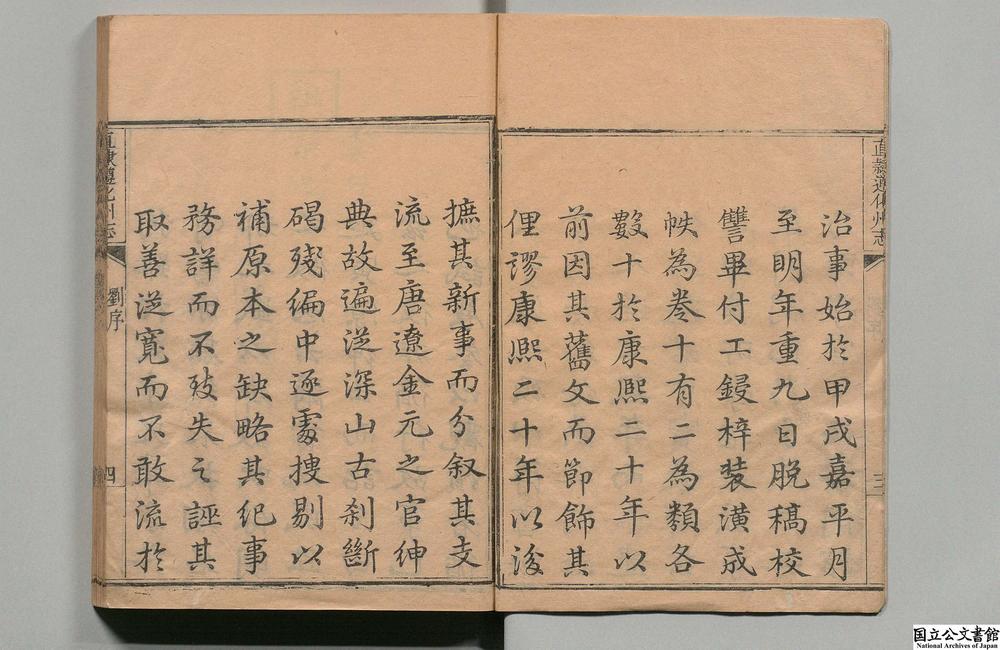 直隷遵化州志
三
治事始於甲戌嘉平月
至明年重九日脱稿校
讐畢付工鋟梓装潢成
帙為巻十有二為類各
數十於康熙二十年以
前因其舊文而節飾其
俚謬康熙二十年以後
摭其新事而分叙其支
流至唐遼金元之官紳
典故遍泛深山古刹斷
碣殘編中逐處搜剔以
補原本之缺略其紀事
務詳而不致失之誣其
取善泛寛而不敢流於
直隷遵化州志
劉序
四
国立公文書館
National Archives of Japan